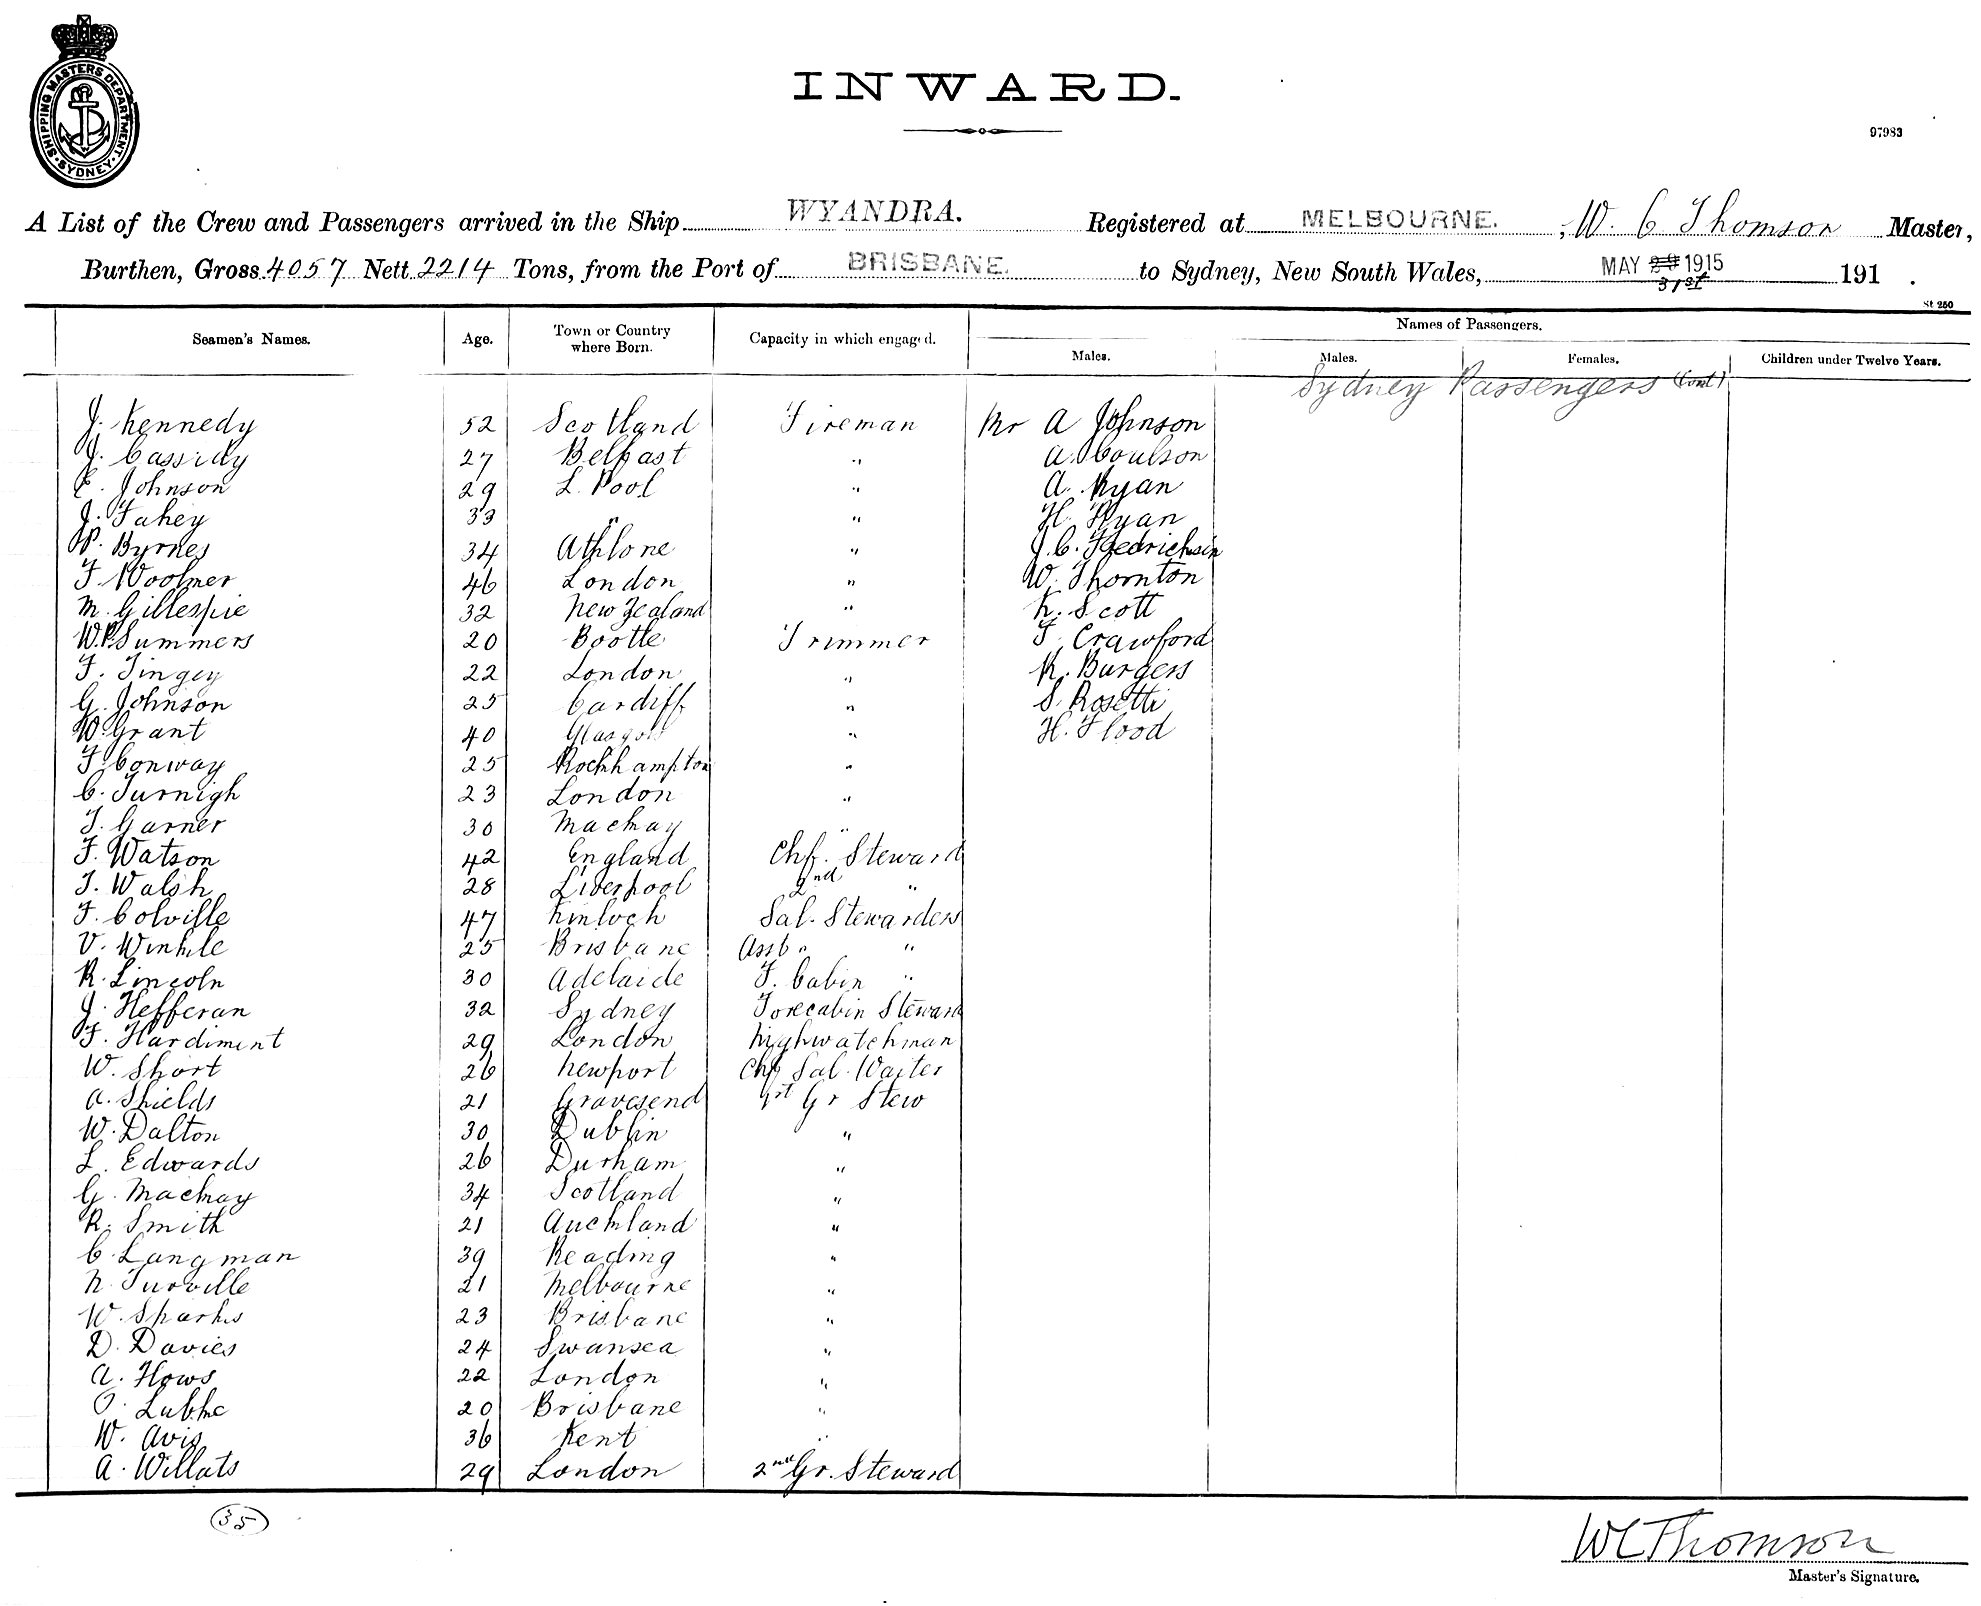 SHIPPING MASTERS DEPARTMENT · SYDNEY ·
INWARD.
97983
A List of the Crew and Passengers arrived in the Ship WYANDRA. Registered at MELBOURNE. , W. C Thomson Master,
Burthen, Gross 4057 Nett 2214 Tons, from the Port of BRISBANE. to Sydney, New South Wales, MAY 30 1915 191 .
31st
St 250
Seamen's Names. Age. Town or Country where Born. Capacity in which engaged. Names of Passengers.
Males. Males. Females. Children under Twelve Years.
Sydney Passengers (Cont)
J. Kennedy 52 Scotland Fireman Mr A Johnson
J. Cassidy 27 Belfast " A. Coulson
E. Johnson 29 L. Pool " A. Ryan
J. Fahey 33 " " H. Ryan
P. Byrnes 34 Athlone " J. C. Fredricksin
F. Woolner 46 London " W. Thornton
M. Gillespie 32 New Zealand " K. Scott
W.P. Summers 20 Bootle Trimmer T. Crawford
F. Tingey 22 London " R. Burgess
G. Johnson 25 Cardiff " S. Rosetti
W. Grant 40 Glasgow " H. Flood
F. Conway 25 Rockhampton "
C. Turnigh 23 London "
T. Garner 30 Mackay "
F. Watson 42 England Chf. Steward
T. Walsh 28 Liverpool 2nd "
F. Colville 47 Kinloch Sal. Stewardess
V. Winkle 25 Brisbane Asst " "
R. Lincoln 30 Adelaide F. Cabin "
J. Hefferan 32 Sydney Forecabin Steward
F. Hardiment 29 London Nighwatchman
W. Short 26 Newport Chf Sal. Waiter
A. Shields 21 Gravesend 1st Gr Stew
W. Dalton 30 Dublin "
L. Edwards 26 Durham "
G. Mackay 34 Scotland "
R. Smith 21 Auckland "
C. Langman 39 Reading "
N. Turville 21 Melbourne "
W. Sparks 23 Brisbane "
D. Davies 24 Swansea "
A. Hows 22 London "
Lubke 20 Brisbane "
W. Avis 36 Kent "
A. Willats 29 London 2nd Gr. Steward
35
WC Thomson
Master's Signature.